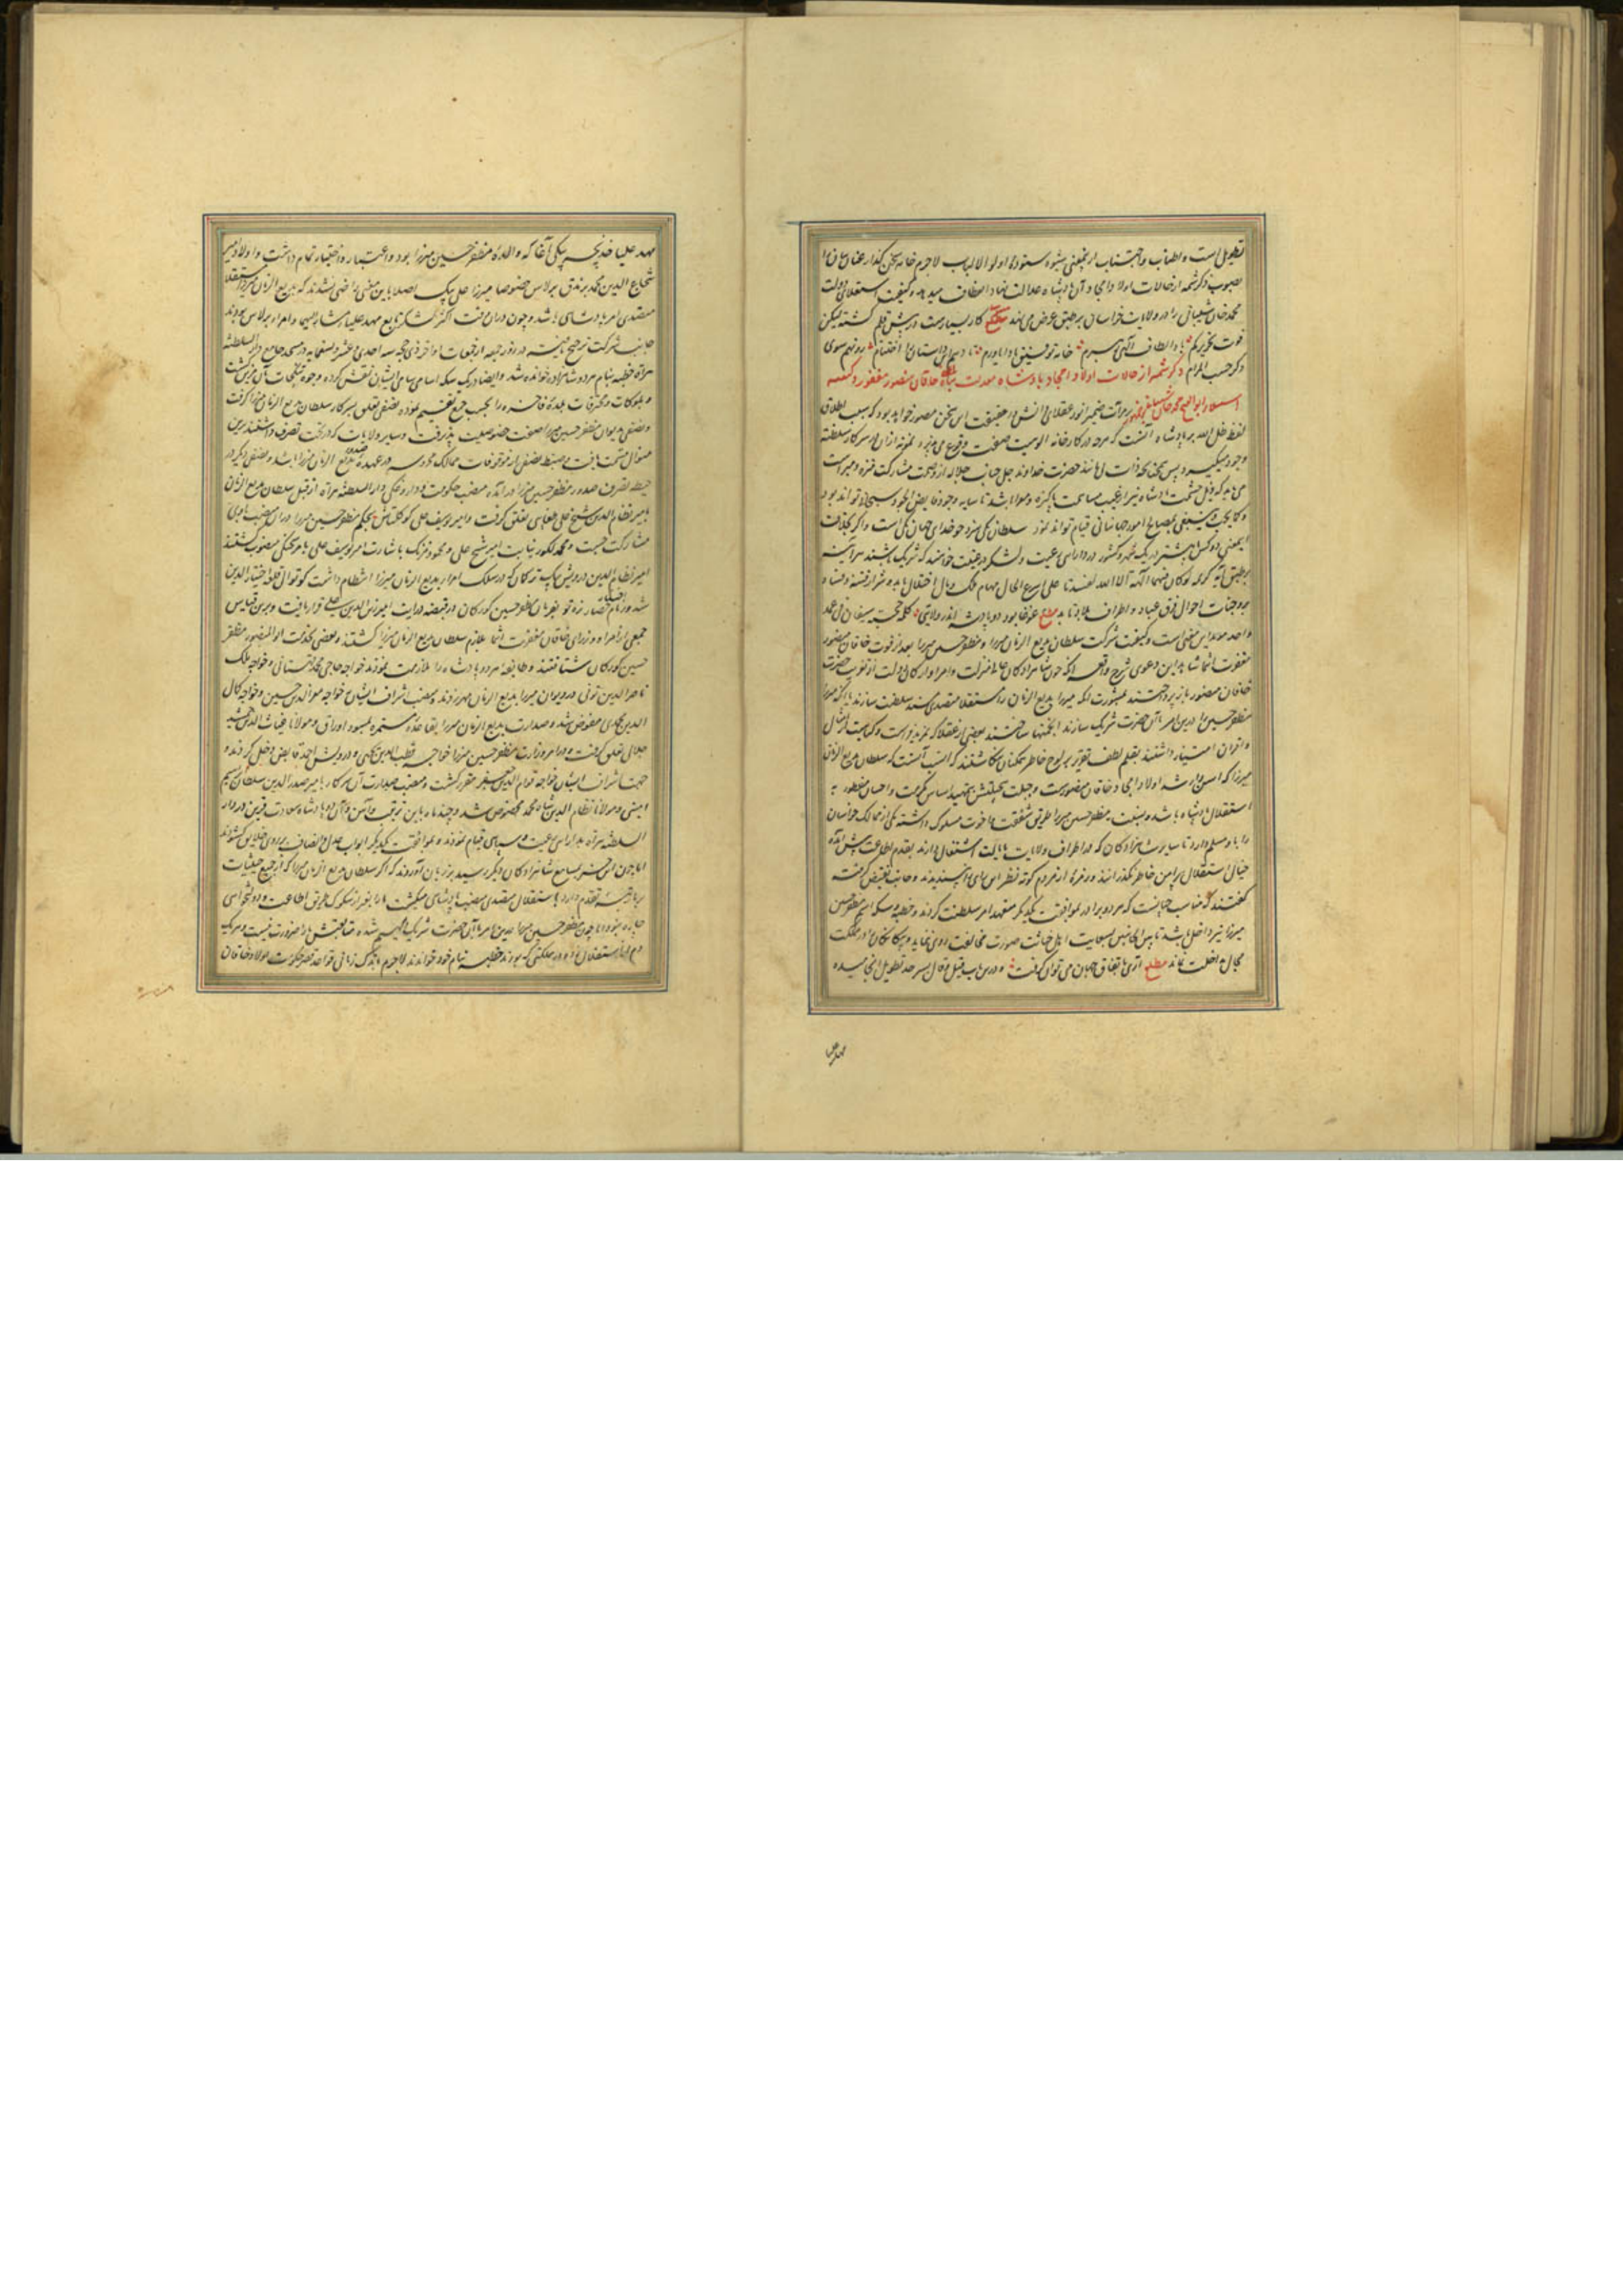 تطویل است و اطناب و اجتناب ازین معنی شیوه ستوده اولو الالباب لاجرم خامه سخن گذار عنان بیان را
بصوب ذکر شمه از حالات اولاد امجاد آن پادشاه عدالت نهاد انعطاف میدهد و کیفیت استیلای دولت
محمد خان شیبانی را در ولایات خراسان بر طبق عرض می نهد کار بسیارست در پیش قلم گشته لیکن
قوت تحریر کم یا د الطاف الهی خامه توفیق داستان اختتام رو نهم سوی
ذکر حسب المرام ذکر شمه از حالات اولاد امجاد پادشاه معدلت پناه خاقان منصور مغفور و کیفیت
استیلاء ابوالفتح محمد خان بر مرآت ضمیر انور عقلای دانش این سخن مصور خواهد بود که سبب اطلاق
لفظ ظل الله بر پادشاه آنست که هرچه در کارخانه الوهیت صفت وقوع می پذیرد نمونه ازان در سرکار سلطنت
وجود میگیرد پس همچنانکه ذات بی مانند حضرت خداوند جل جناب جلاله از وصمت مشارکت منزه و مبراست
می باید که ذیل حشمت پادشاه نیز از عیب مساهمت پاکیزه و معرا باشد تا سایه وجود فایض الجود سبحانی تواند بود
و کما یجب و ینبغی بمصالح امور جهانبانی قیام تواند نمود سلطان یکی سزد چو خدای جهان یکی است و اگر بخلاف
این معنی دو کس یا بیشتر در یک شهر و کشور در دارایی رعیت و لشکر خواهند که شریک باشند هر آینه
بر طبق آیه کریمه لو کان فیهما آلهة الا الله لفسدتا علی اسرع الحال مهام ملک و مال اختلال یابد و شرار فتنه و فساد
بر وجنات احوال فرق عباد و اطراف بلاد تابد مصرع غوغا بود دو پادشه اندر ولایتی کلمه سیفان فی غمد
واحد موید این معنی است و کیفیت شرکت سلطان بدیع الزمان میرزا و مظفر حسین میرزا بعد از فوت خاقان منصور
مغفرت انتما شاهد این دعوی شرح واقعه آنکه چون شاهزادگان عالی منزلت و امرا و ارکان دولت از تعزیت حضرت
خاقان منصور باز پرداختند بمشورت آنکه میرزا بدیع الزمان را باستقلال متصدی مسند سلطنت سازند یا آنکه میرزا
مظفر حسین را درین امر با آن حضرت شریک سازند انجمنها ساختند بعضی از عقلا که بمزید فراست و کیاست از امثال
و اقران امتیاز داشتند بقلم لطف تقریر بر لوح خاطر همکنان نگاشتند که انسب آنست که سلطان بدیع الزمان
میرزا که اسن و ارشد اولاد امجاد خاقان منصورست و جبلت بتمهید اساس مکرمت و احسان مفطور به
استقلال پادشاه باشد و نسبت بمظفر حسین میرزا طریق شفقت و اخوت مسلوک داشته یکی از ممالک خراسان
را باو مسلم دارد تا سایر شاهزادگان که در اطراف ولایت بایالت اشتغال دارند بقدم اطاعت پیش آمده
خیال استقلال پیرامن خاطر نگذرانند و زمره از مردم کوته نظر این رای را نپسندیدند و جانب نقیض گرفته
گفتند که مناسب چنانست که هر دو برادر بموافقت یکدیگر متعهد امر سلطنت گردند و خطبه و سکه اسم مظفر حسین
میرزا نیز داخل باشد تا پس از این بسعایت اهل خباثت صورت مخالفت روی ننماید و بیگانگان را در مملکت
مجال مداخلت نماند مصرع آری باتفاق جهان می توان گرفت و درین باب قیل و قال بسرحد تطویل انجامیده
مهد علیا
مهد علیا خدیجه بیکی آغا که والده مظفر حسین میرزا بود و اعتبار و اختیار تمام داشت و اولاد امیر
شجاع الدین محمد برندق برلاس خصوصا میرزا علی بیک اصلا باین معنی راضی نشدند که بدیع الزمان میرزا باستقلال
متصدی امر پادشاهی باشد و چون دران وقت اکثر لشکر تابع مهد علیا مشار الیها و امراء برلاس بودند
جانب شرکت ترجیح یافته در روز جمعه از جمعات اواخر ذی حجه سنه احدی عشر و تسعمایه در مسجد جامع دار السلطنه
هراة خطبه بنام هر دو شاهزاده خوانده شد و ایضا در یک سکه اسامی سامی ایشان نقش کرده وجوه تمغجات آن
و بلوکات و محترقات بلده فاخره را بحسب جمع تقسیم نموده نصفی تعلق بسرکار سلطان بدیع الزمان میرزا گرفت
و نصفی بدیوان مظفر حسین میرزا صفت خصوصیت پذیرفت و سایر ولایات که در تحت تصرف داشتند برین
منوال قسمت یافت و ضبط نصفی از موقوفات ممالک محروسه در عهده صدور بدیع الزمان میرزا باشد و نصفی دیگر در
حیطه تصرف صدور مظفر حسین میرزا درآمد منصب حکومت و داروغگی دار السلطنه هراة از قبل سلطان بدیع الزمان
بامیر نظام الدین شیخ علی طغایی تعلق گرفت و امیر یوسف علی کوکلتاش بحکم مظفر حسین میرزا دران منصب با وی
مشارکت جست و محمد لکور بنیابت امیر شیخ علی و محمود باشارت امیر یوسف علی بامر منصوب گشتند
امیر نظام الدین درویش بیک ترکمان که در سلک امراء بدیع الزمان میرزا انتظام داشت کوتوال قلعه اختیار الدین
شد بفرمان مظفر حسین کورکان در قبضه درایت امیر قرار یافت و برین قیاس
جمعی از امراء و وزرای خاقان مغفرت انتما ملازم سلطان بدیع الزمان میرزا گشتند و بعضی بخدمت ابو المنصور مظفر
حسین کورکان شتافتند و طایفه هر دو پادشاه را ملازمت نمودند خواجه حاجی محمد و خواجه ملک
ناصر الدین تونی در دیوان میرزا بدیع الزمان مهر زدند و منصب اشراف ایشان بخواجه معز الدین حسین و خواجه کمال
الدین مفوض شد و صدارت بدیع الزمان میرزا بقاعده مستمره بمسود اوراق و مولانا غیاث الدین جمشید
جلالی تعلق گرفت و در امر وزارت مظفر حسین میرزا خواجه قطب الدین و درویش احمد قابض دخل کردند و
جهت اشراف ایشان خواجه قوام الدین مقرر گشت و منصب صدارت آن سرکار بامیر صدر الدین سلطان ابراهیم
امینی و مولانا نظام الدین شاه محمد مخصوص شد و چند ماه باین ترتیب و آئین آن دو پادشاه سعادت قرین در دار
السلطنه هراة بدارایی رعیت و سپاهی قیام نمودند و بموافقت یکدیگر ابواب عدل و انصاف بر روی خلایق گشودند
اما چون این خبر بمسامع شاهزادگان دیگر رسید بر زبان آوردند که اگر سلطان بدیع الزمان میرزا که از جمیع حیثیات
بر ما تقدم دارد باستقلال متصدی منصب پادشاهی میگشت ما را بغیر از سلوک طریق اطاعت و دولتخواهی
چاره نبود اما چون مظفر حسین میرزا درین امر با آن حضرت شریک و سهیم شده متابعتش ما را ضرورت نیست و هر یک
دم از استقلال زده در مملکتی که بودند خطبه بنام خود خواندند لاجرم باندک زمانی قواعد قصر حکومت اولاد خاقان